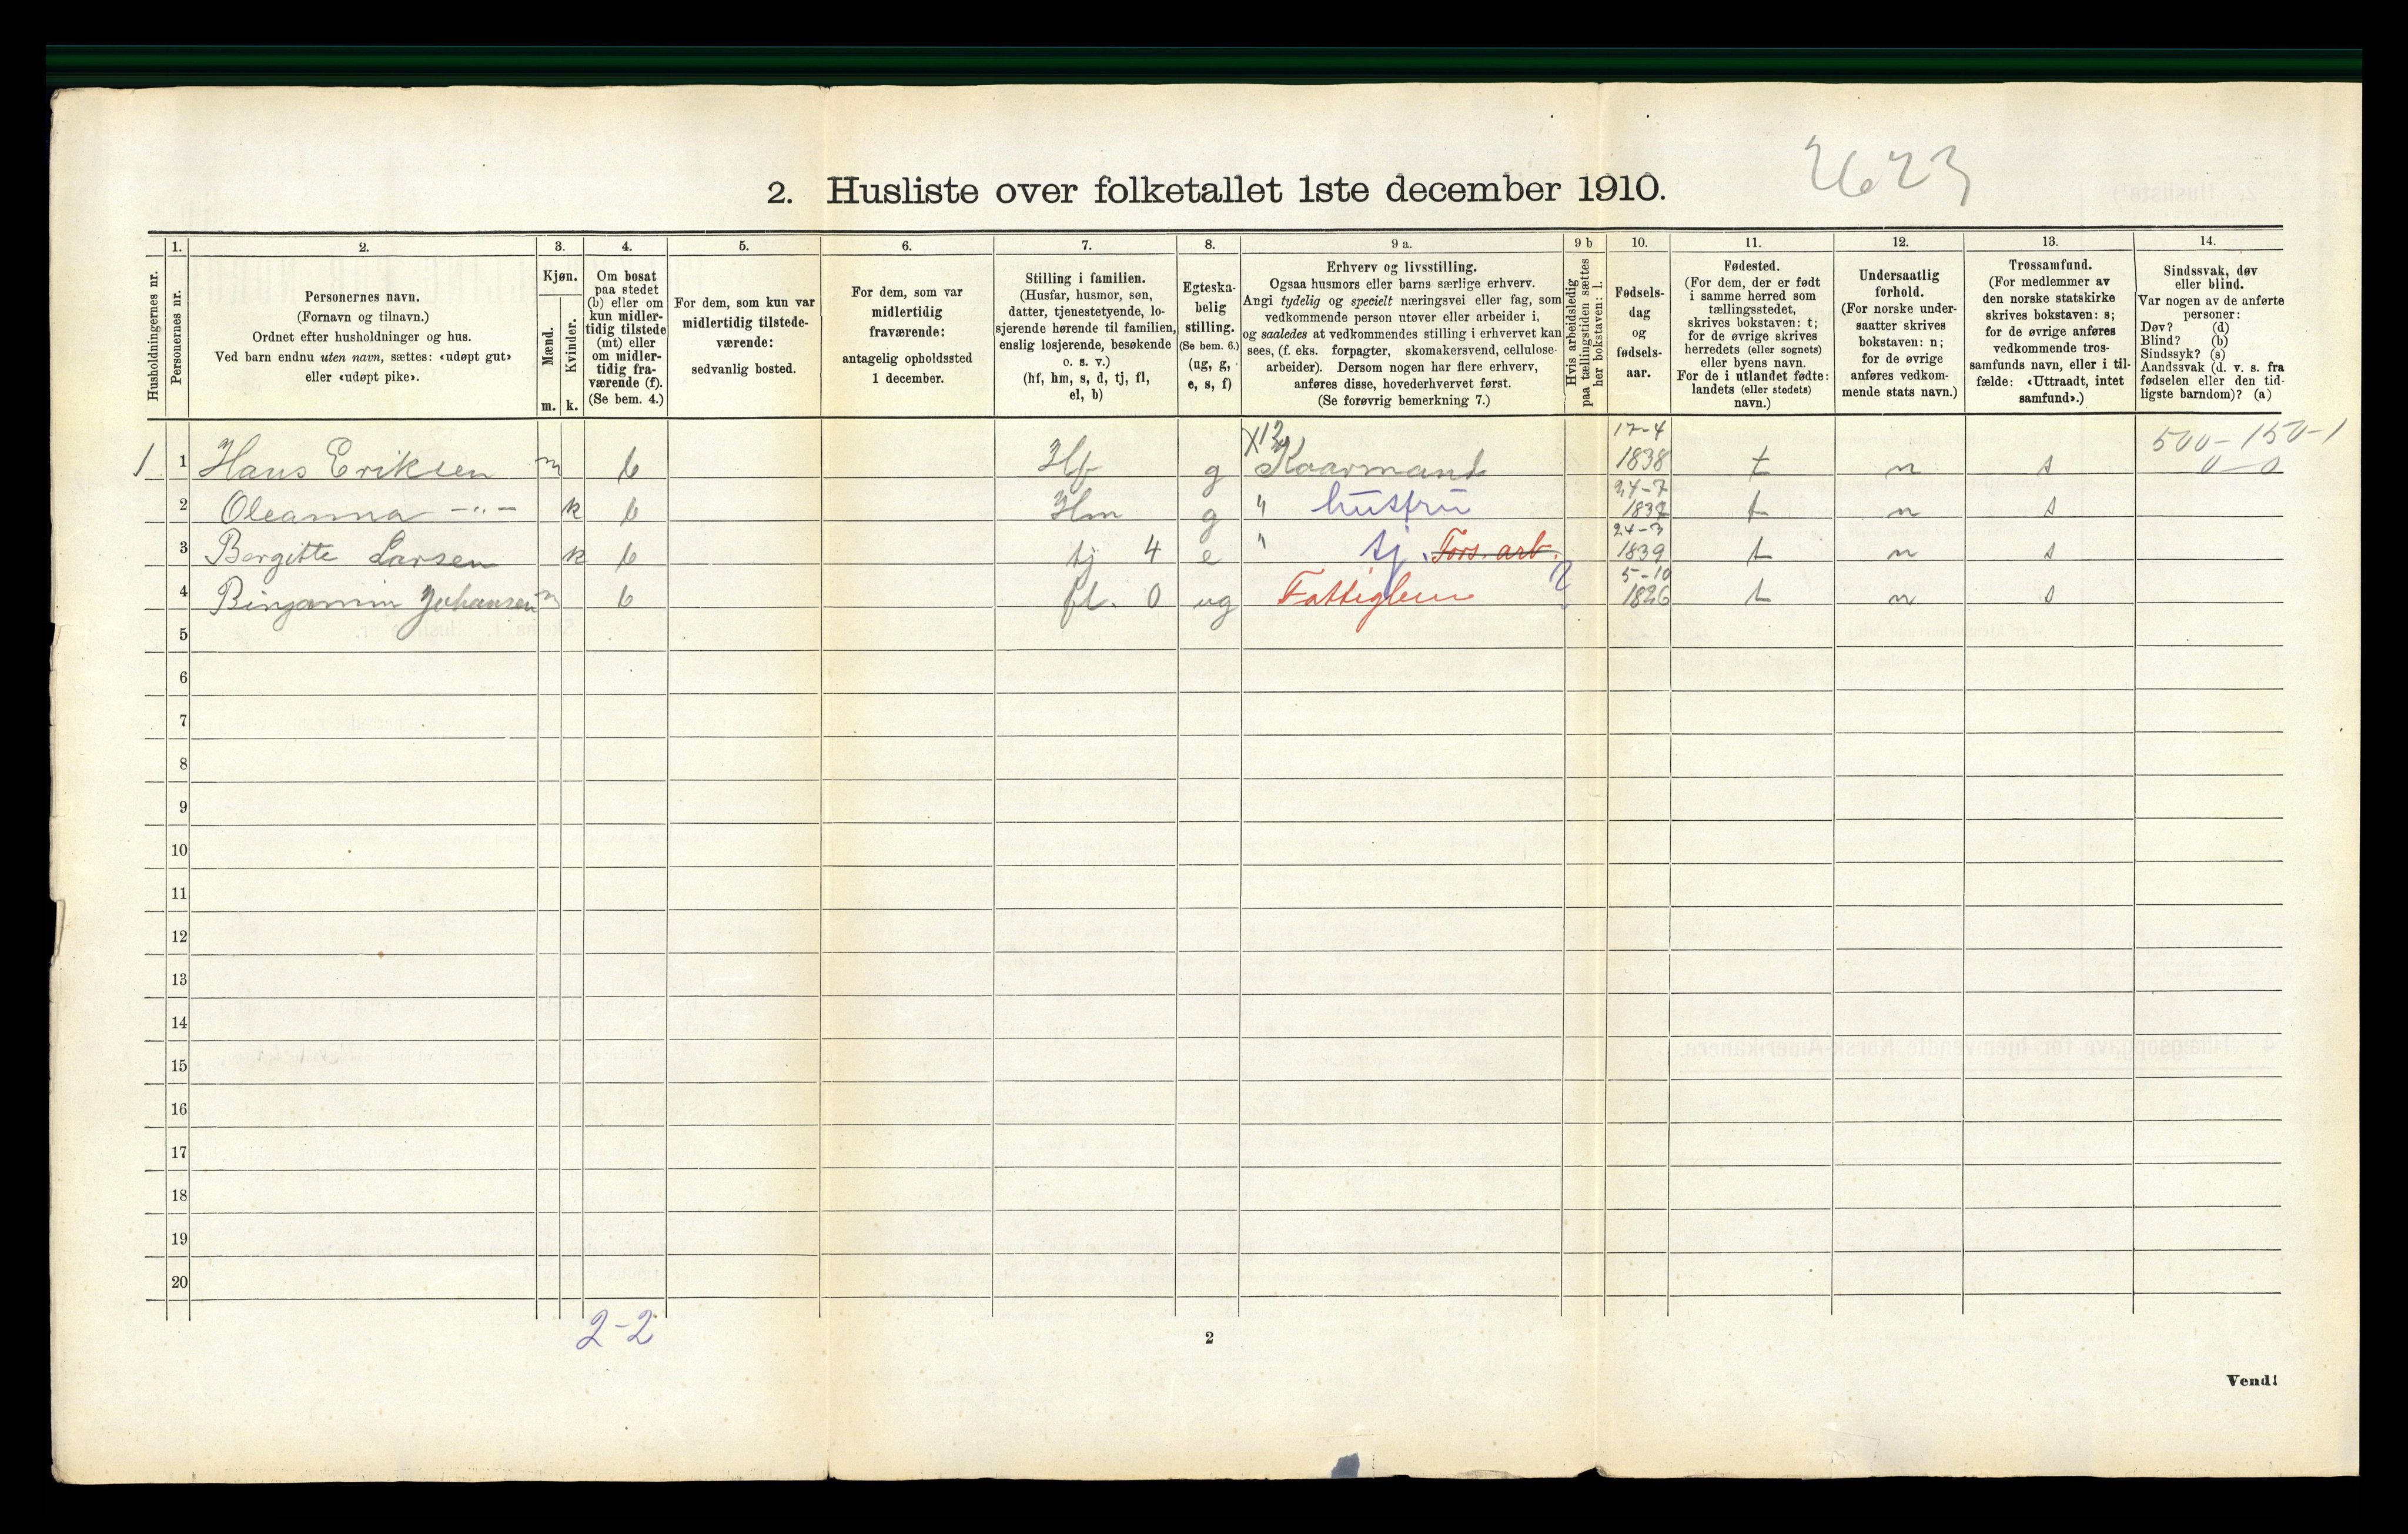 2623
2. Husliste over folketallet 1ste december 1910.
Husholdningernes nr.
1.
Personernes nr.
2.
Personernes navn.
(Fornavn og tilnavn.)
Ordnet efter husholdninger og hus.
Ved barn endnu uten navn, sættes: «udøpt gut»
eller «udøpt pike».
3.
Kjøn.
Mænd.
Kvinder.
m. k.
4.
Om bosat
paa stedet
(b) eller om
kun midler-
tidig tilstede
(mt) eller
om midler-
tidig fra-
værende (f).
(Se bem. 4.)
5.
For dem, som kun var
midlertidig tilstede-
værende:
sedvanlig bosted.
6.
For dem, som var
midlertidig
fraværende:
antagelig opholdssted
1 december.
7.
Stilling i familien.
(Husfar, husmor, søn,
datter, tjenestetyende, lo-
sjerende hørende til familien,
enslig losjerende, besøkende
o. s. v.)
(hf, hm, s, d, tj, fl,
el, b)
8.
Egteska-
belig
stilling.
(Se bem. 6.)
(ug, g,
e, s, f)
9 a.
Erhverv og livsstilling.
Ogsaa husmors eller barns særlige erhverv.
Angi tydelig og specielt næringsvei eller fag, som
vedkommende person utøver eller arbeider i,
og saaledes at vedkommendes stilling i erhvervet kan
sees, (f. eks. forpagter, skomakersvend, cellulose-
arbeider). Dersom nogen har flere erhverv,
anføres disse, hovederhvervet først.
(Se forøvrig bemerkning 7.)
9 b
Hvis arbeidsledig
paa tællingstiden sættes
her bokstaven: l.
10.
Fødsels-
dag
og
fødsels-
aar.
11.
Fødested.
(For dem, der er født
i samme herred som
tællingsstedet,
skrives bokstaven: t;
for de øvrige skrives
herredets (eller sognets)
eller byens navn.
For de i utlandet fødte:
landets (eller stedets)
navn.)
12.
Undersaatlig
forhold.
(For norske under-
saatter skrives
bokstaven: n;
for de øvrige
anføres vedkom-
mende stats navn.)
13.
Trossamfund.
(For medlemmer av
den norske statskirke
skrives bokstaven: s;
for de øvrige anføres
vedkommende tros-
samfunds navn, eller i til-
fælde: «Uttraadt, intet
samfund».)
14.
Sindssvak, døv
eller blind.
Var nogen av de anførte
personer:
Døv? (d)
Blind? (b)
Sindssyk? (s)
Aandssvak (d. v. s. fra
fødselen eller den tid-
ligste barndom)? (a)
X12 17-4 500-150-1
1 1 Hans Eriksen m b Hf g Kaarmand 1838 t n s 0-0
24-7
2 Oleanna -"- k b Hm g " hustru 1837 t n s
24-3
3 Bergitte Larsen k b tj 4 e " tj. Fors. arb. 1839 t n s
5-10
4 Binjamin Johansen m b fl. 0 ug Fattiglem 1826 t n s
5
6
7
8
9
10
11
12
13
14
15
16
17
18
19
20
2-2
2
Vend!